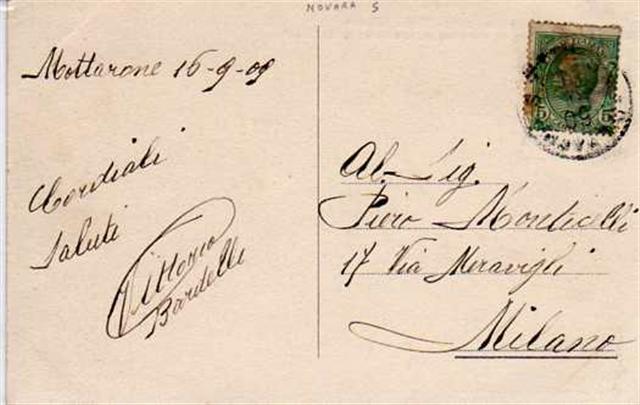 NOVARA S
Mottarone 16-9-09
Cordiali
Saluti
Vittorio
Bardelli
Al Sig.
Piero Monticelli
17 Via Meravigli
Milano